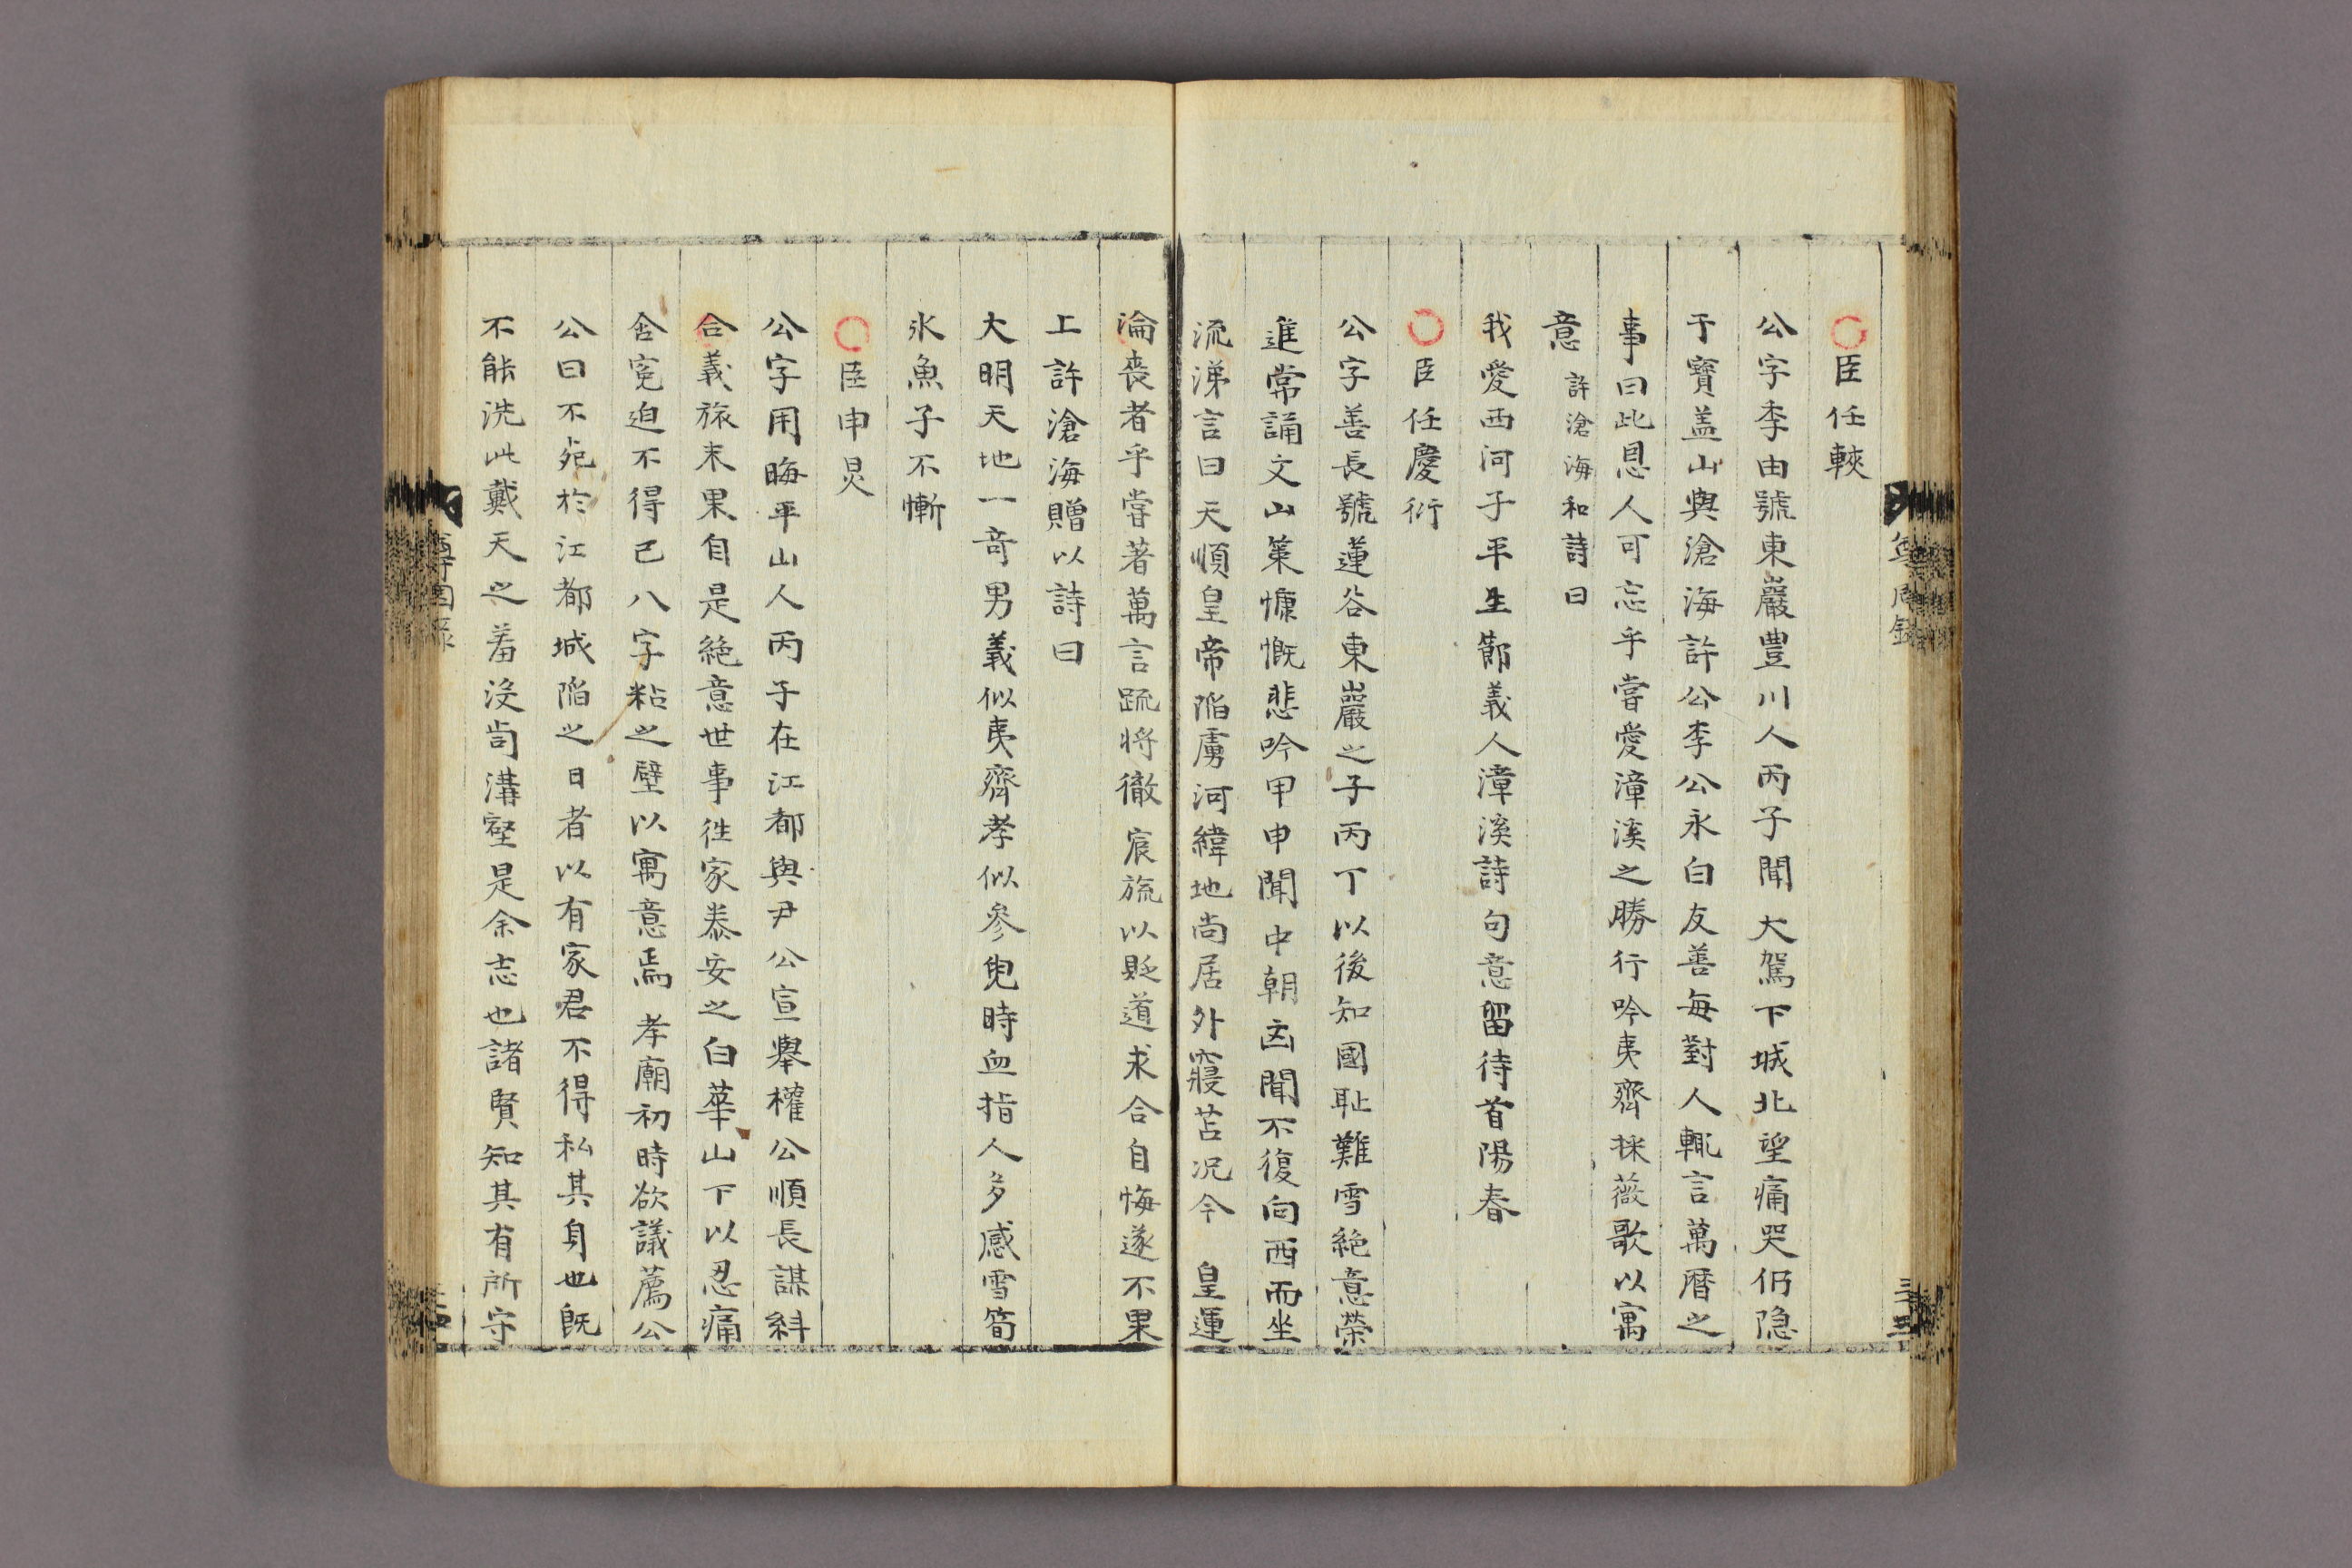 ○臣任輳
公字季由號東巖豊川人丙子聞 大駕下城北望痛哭仍隐
于寶盖山與滄海許公李公永白友善每對人輒言萬曆之
事曰此恩人可忘乎嘗愛漳溪之勝行吟夷齊採薇歌以寓
意 許滄海和詩曰
我愛西河子平生節義人漳溪詩句意留待首陽春
○臣任慶衍
公字善長號蓮谷東巖之子丙丁以後知國耻難雪絶意榮
進常誦文山策慷慨悲吟甲申聞中朝凶聞不復向西而坐
流涕言曰天順皇帝陷虜河緯地尚居外寢苫况今 皇運
淪喪者乎嘗著萬言疏將徹 宸旒以貶道求合自悔遂不果
上許滄海贈以詩曰
大明天地一竒男義似夷齊孝似參兒時血指人多感雪筍
氷魚子不慚
○臣申炅
公字用晦平山人丙子在江都與尹公宣擧權公順長謀糾
合義旅未果自是絶意世事徃家㤗安之白華山下以忍痛
含寃迫不得已八字粘之壁以寓意焉 孝廟初時欲議薦公
公曰不死於江都城陷之日者以有家君不得私其身也既
不能洗此戴天之羞没齒溝壑是余志也諸賢知其有所守